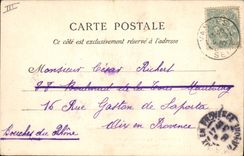 III
CARTE POSTALE
Ce côté est exclusivement réservé à l'adresse
Monsieur César Richert
28 Boulevard de la Tour Maubourg
16 Rue Gaston de Saporta
Aix en Provence
Bouches du Rhône